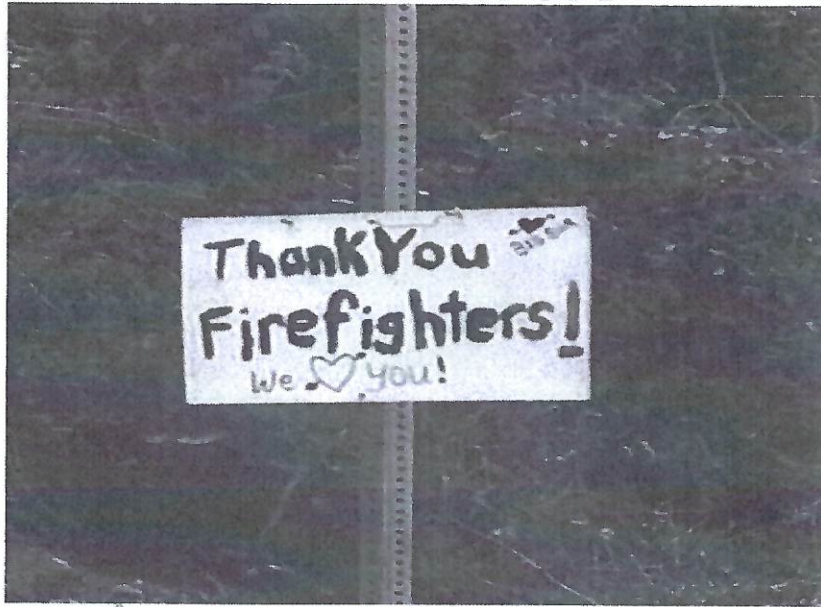 Thank You
Firefighters!
We ♡ you!